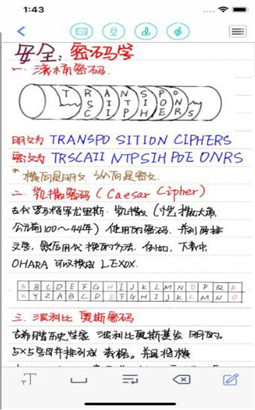 1:43
安全：密码学
一. 滚桶密码.
T R A N S P O
S I T I O N
C I P H E R S
明文为 TRANSPO SITION CIPHERS
密文为 TRSCAII NTPSIH POE ONRS
* 横向是明文 纵向是密文.
二. 凯撒密码 (Caesar Cipher)
古代罗马领导尤里斯·凯撒 (恺撒大帝,
公元前100~44年) 使用的密码. 并列两排
文字, 然后用代换的方法. 例如, 下表中
OHARA 可以换成 LEXOX.
A B C D E F G H I J K L M N O P Q R
X Y Z A B C D E F G H I J K L M N O
三. 波利比奥斯密码
古希腊历史学家 波利比奥斯甚么 明的.
5×5字母并排列成 表格. 并且将横